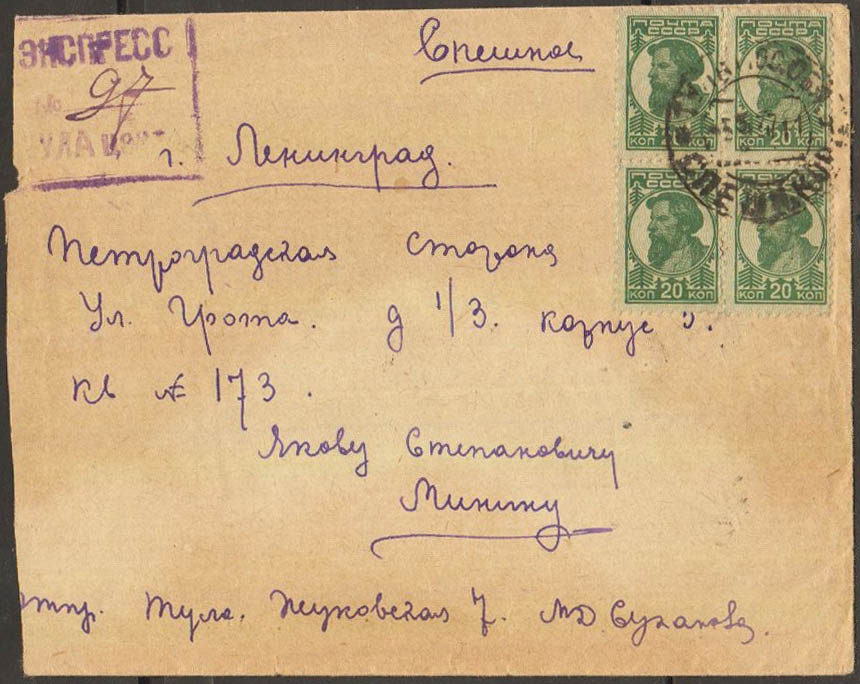 ЭКСПРЕСС
№ 97
ТУЛА
Спешное
ПОЧТА СССР
ПОЧТА СССР
20 КОП
КОП 20 КОП
ПОЧТА СССР
ПОЧТА СССР
КОП 20 КОП
20 КОП
г. Ленинград.
Петроградская сторона
Ул. Грота. д 1/3. корпус
кв № 173.
Якову Степановичу
Минину
отпр. Тула. Жуковская 7. М.Д. Суханова.